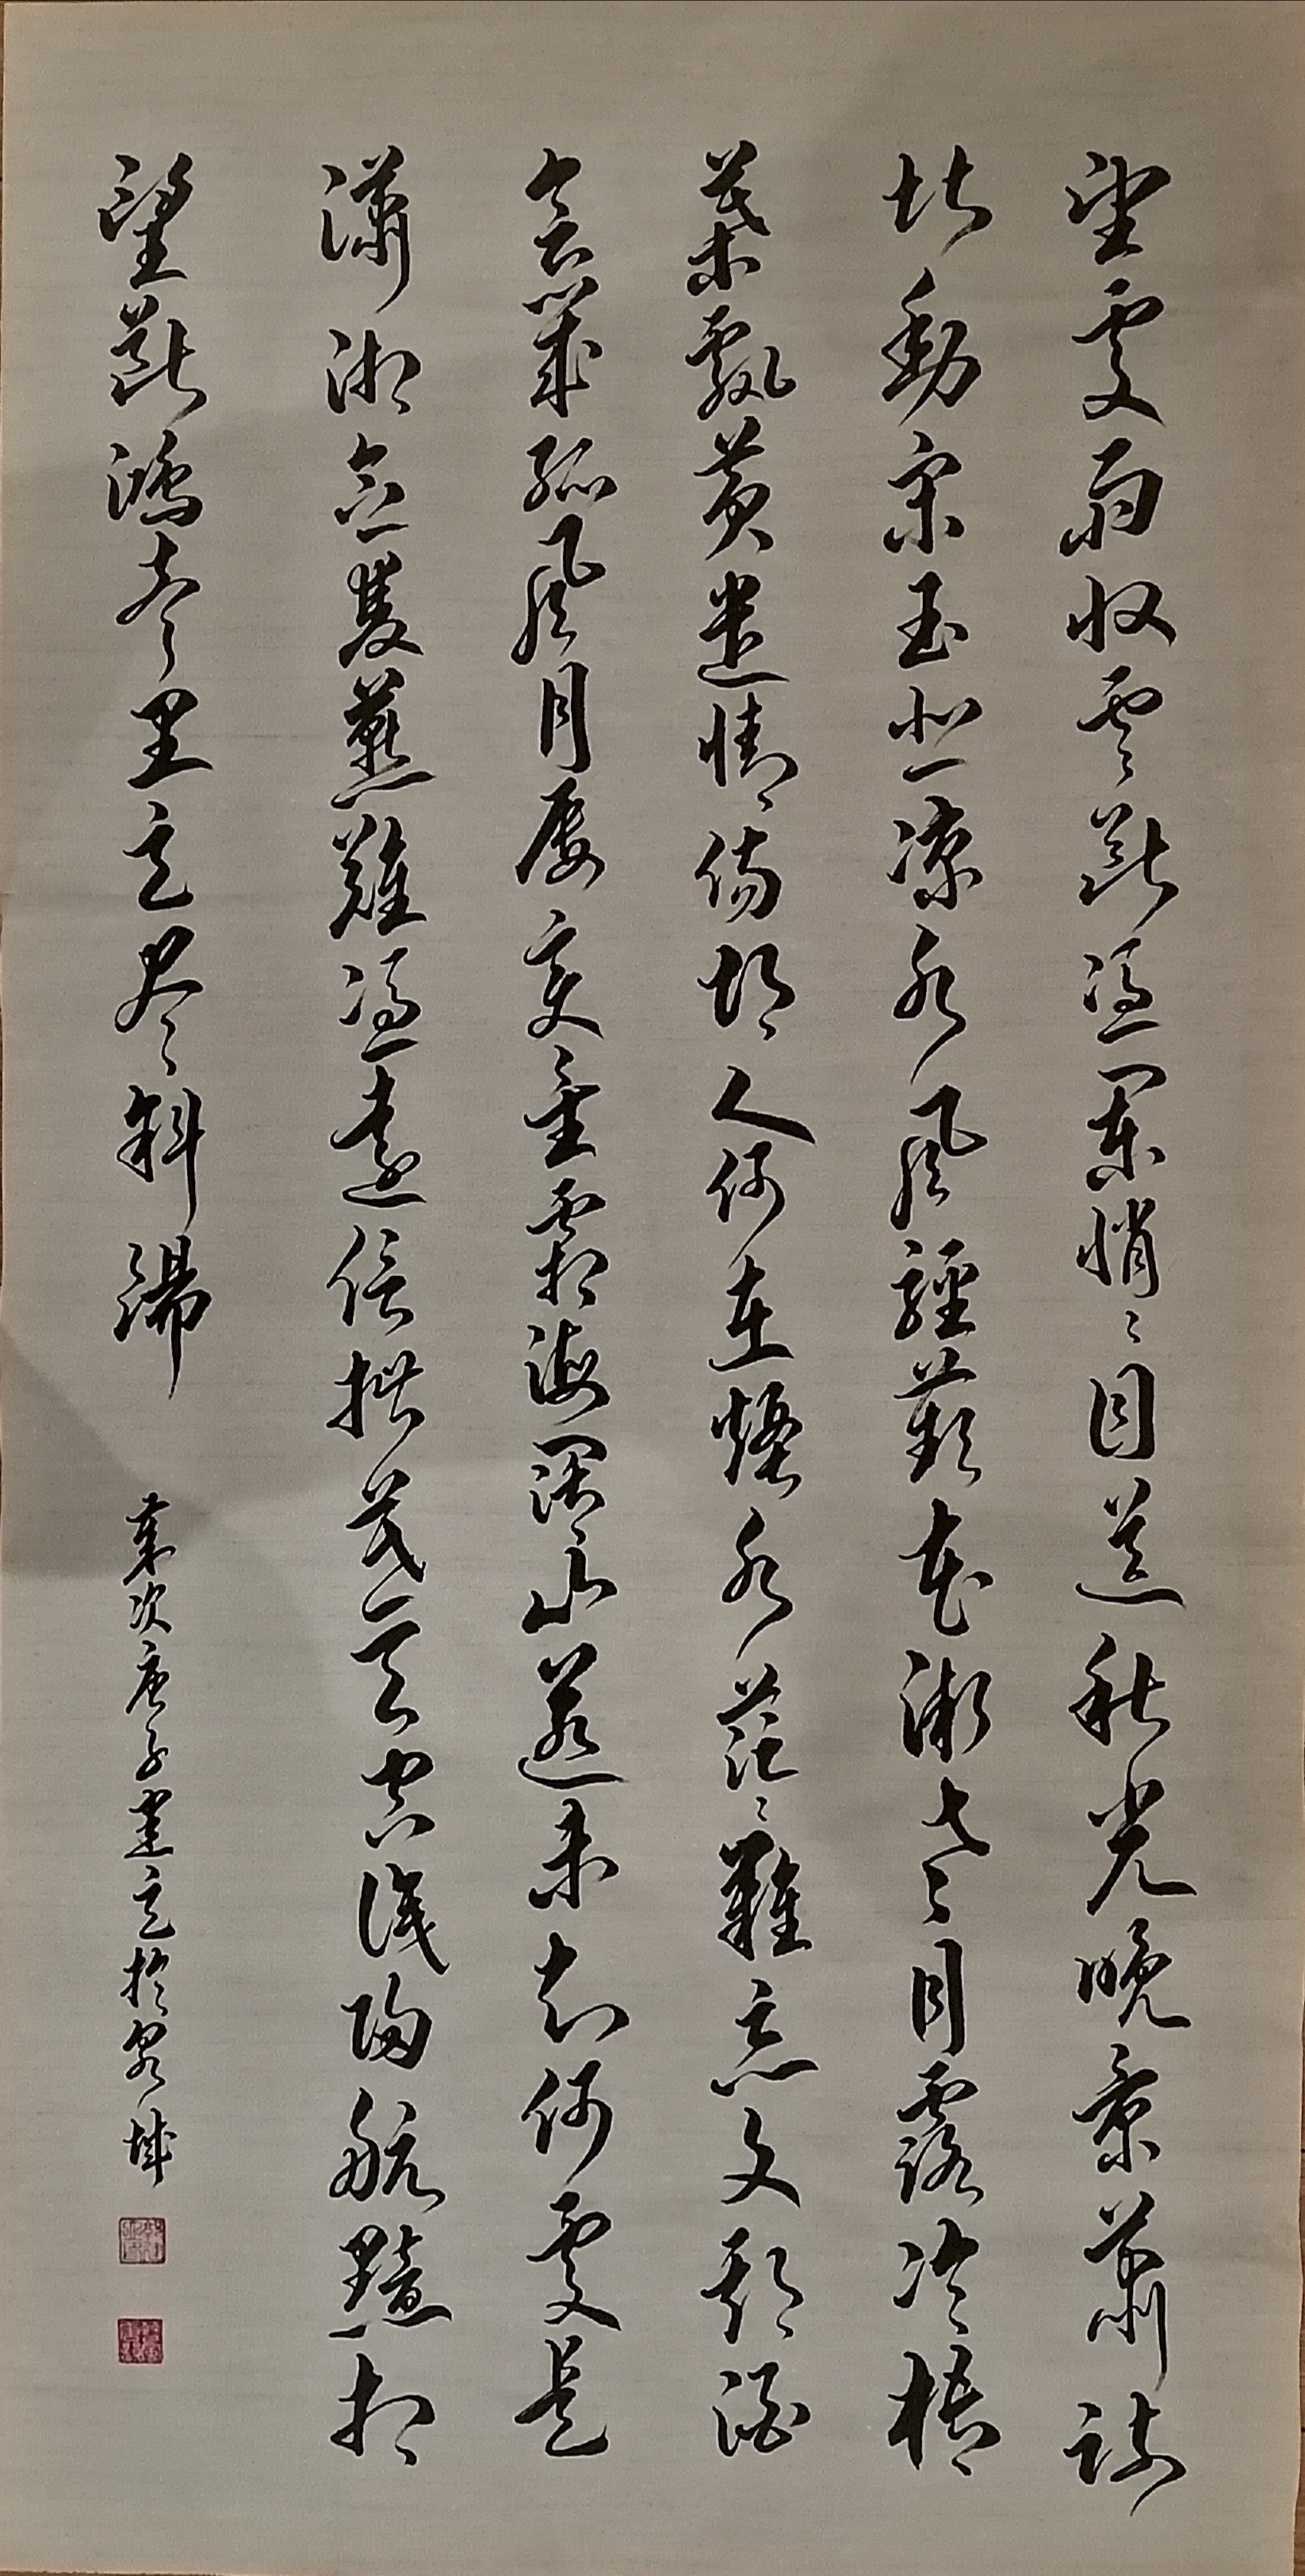 望處雨收雲斷憑闌悄々目送秋光晚景蕭疎
堪動宋玉悲凉水風輕蘋花漸老月露冷梧
葉飄黄遣情傷故人何在煙水茫々難忘文期酒
會幾孤風月屢變星霜海闊山遥未知何處是
瀟湘念雙燕難憑遠信指暮天空識歸航黯相
望斷鴻声里立尽斜陽
歲次庚子建立於泉城